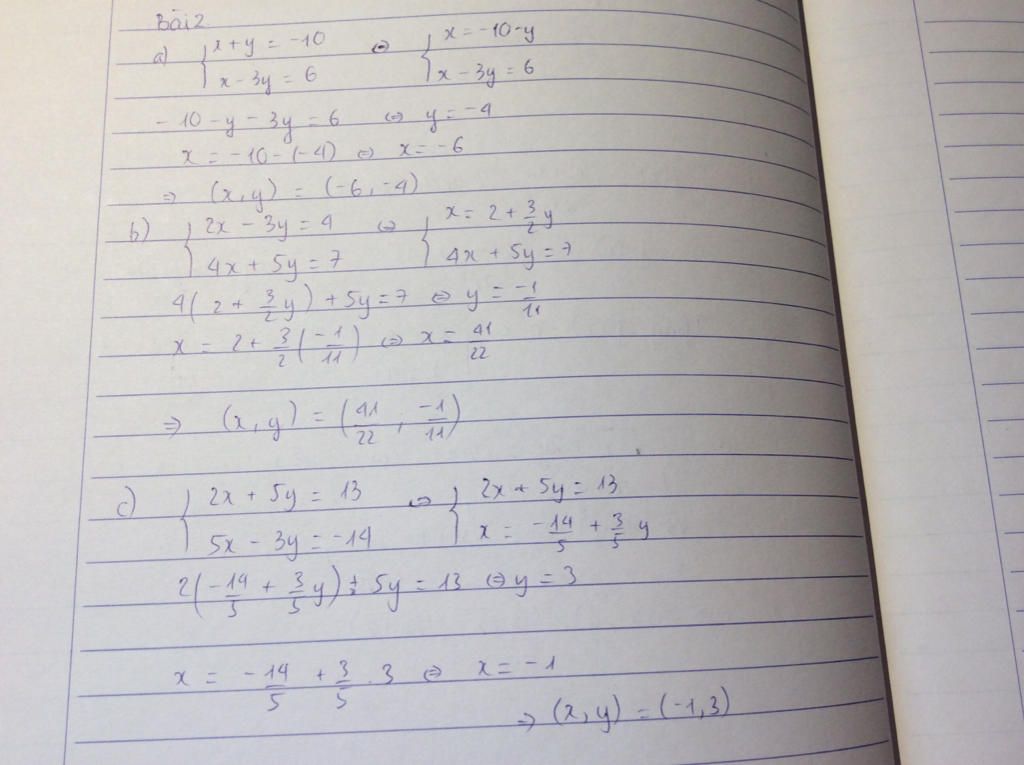 Bài 2
a) { x + y = -10 ⇔ { x = -10 - y
x - 3y = 6 x - 3y = 6
-10 - y - 3y = 6 ⇔ y = -4
x = -10 - (-4) ⇔ x = -6
⇒ (x, y) = (-6, -4)
b) { 2x - 3y = 4 ⇔ { x = 2 + 3/2 y
4x + 5y = 7 4x + 5y = 7
4(2 + 3/2 y) + 5y = 7 ⇔ y = -1/11
x = 2 + 3/2 (-1/11) ⇔ x = 41/22
⇒ (x, y) = (41/22, -1/11)
c) { 2x + 5y = 13 ⇔ { 2x + 5y = 13
5x - 3y = -14 x = -14/5 + 3/5 y
2(-14/5 + 3/5 y) + 5y = 13 ⇔ y = 3
x = -14/5 + 3/5 . 3 ⇔ x = -1
⇒ (x, y) = (-1, 3)